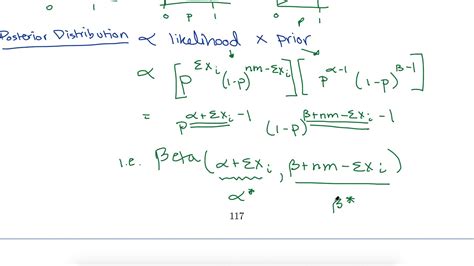 0 p 1 0 p 1
Posterior Distribution ∝ likelihood × prior
∝ [p^{Σx_i} (1-p)^{nm-Σx_i}] [p^{α-1} (1-p)^{β-1}]
= p^{α+Σx_i-1} (1-p)^{β+nm-Σx_i-1}
i.e. Beta(α+Σx_i, β+nm-Σx_i)
α* β*
117